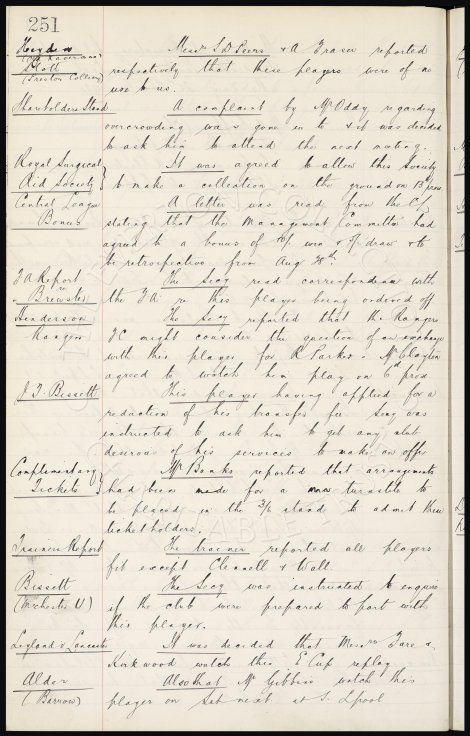 251
Heyden
Messrs S B Peers & A Fraser reported
Stott
(Preston Colliery)
respectively that these players were of no
use to us.
Shareholders Stand
A complaint by Mr Oddy regarding
overcrowding was gone into & it was decided
to ask him to attend the next meeting.
Royal Surgical
It was agreed to allow this Society
Aid Society
to make a collection on the ground on 13th
Central League
A letter was read from the C/L
Bonus
stating that the Management Committee had
agreed to a bonus of win & draw & to
be retrospective from Aug
F A Report
The Secy read correspondence with
re Brewster
the FA re this player being ordered off
Henderson
The Secy reported that the Rangers
Rangers
FC might consider the question of an exchange
with this player for R Parker. Mr Clayton
agreed to watch him play on prox
J. T. Bissett
This player having applied for a
reduction of his transfer fee Secy was
instructed to ask him to get any club
desirous of his services to make an offer
Complimentary
Mr Banks reported that arrangements
Tickets
had been made for a new turnstile to
be placed in the 3/- stand to admit these
ticketholders.
Trainers Report
The trainer reported all players
fit except Clennell & Wall.
Bissett
The Secy was instructed to enquire
(M'chester U)
if the club were prepared to part with
this player.
Leyland v Lancaster
It was decided that Messrs Tare &
Kirkwood watch this E Cup replay
Alder
Also that Mr Gibbins watch this
(Barrow)
player on Sat next at S. Lpool